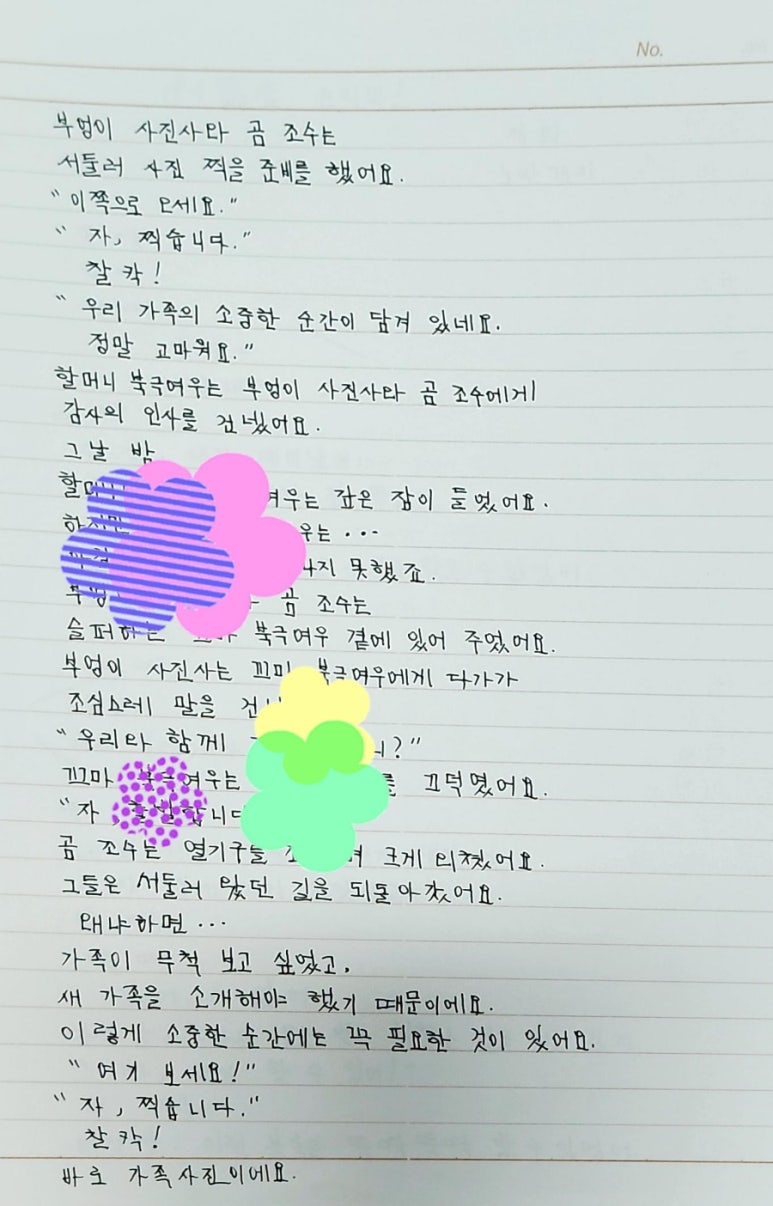 No.
부엉이 사진사와 곰 조수는
서둘러 사진 찍을 준비를 했어요.
"이쪽으로 오세요."
"자, 찍습니다."
찰칵!
"우리 가족의 소중한 순간이 담겨 있네요.
정말 고마워요."
할머니 북극여우는 부엉이 사진사와 곰 조수에게
감사의 인사를 건넸어요.
그날 밤
여우는 깊은 잠이 들었어요.
우는...
지 못했죠.
곰 조수는
슬퍼하는 북극여우 곁에 있어 주었어요.
부엉이 사진사는 꼬마 북극여우에게 다가가
조심스레 말을
"우리와 함께 ?"
꼬마 북극여우는 끄덕였어요.
"자,
곰 조수는 열기구를 크게 외쳤어요.
그들은 서둘러 왔던 길을 되돌아갔어요.
왜냐하면...
가족이 무척 보고 싶었고,
새 가족을 소개해야 했기 때문이에요.
이렇게 소중한 순간에는 꼭 필요한 것이 있어요.
"여기 보세요!"
"자, 찍습니다."
찰칵!
바로 가족사진이에요.